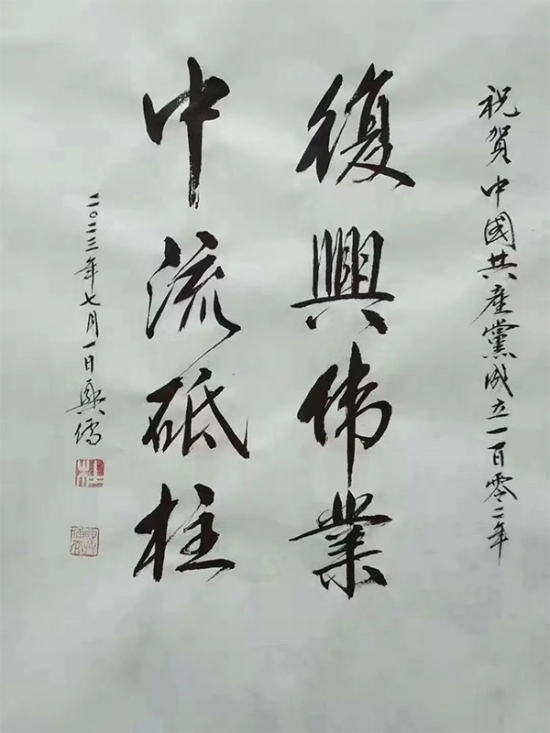 祝賀中國共産黨成立一百零二年
復興伟業
中流砥柱
二〇二三年七月一日興儒